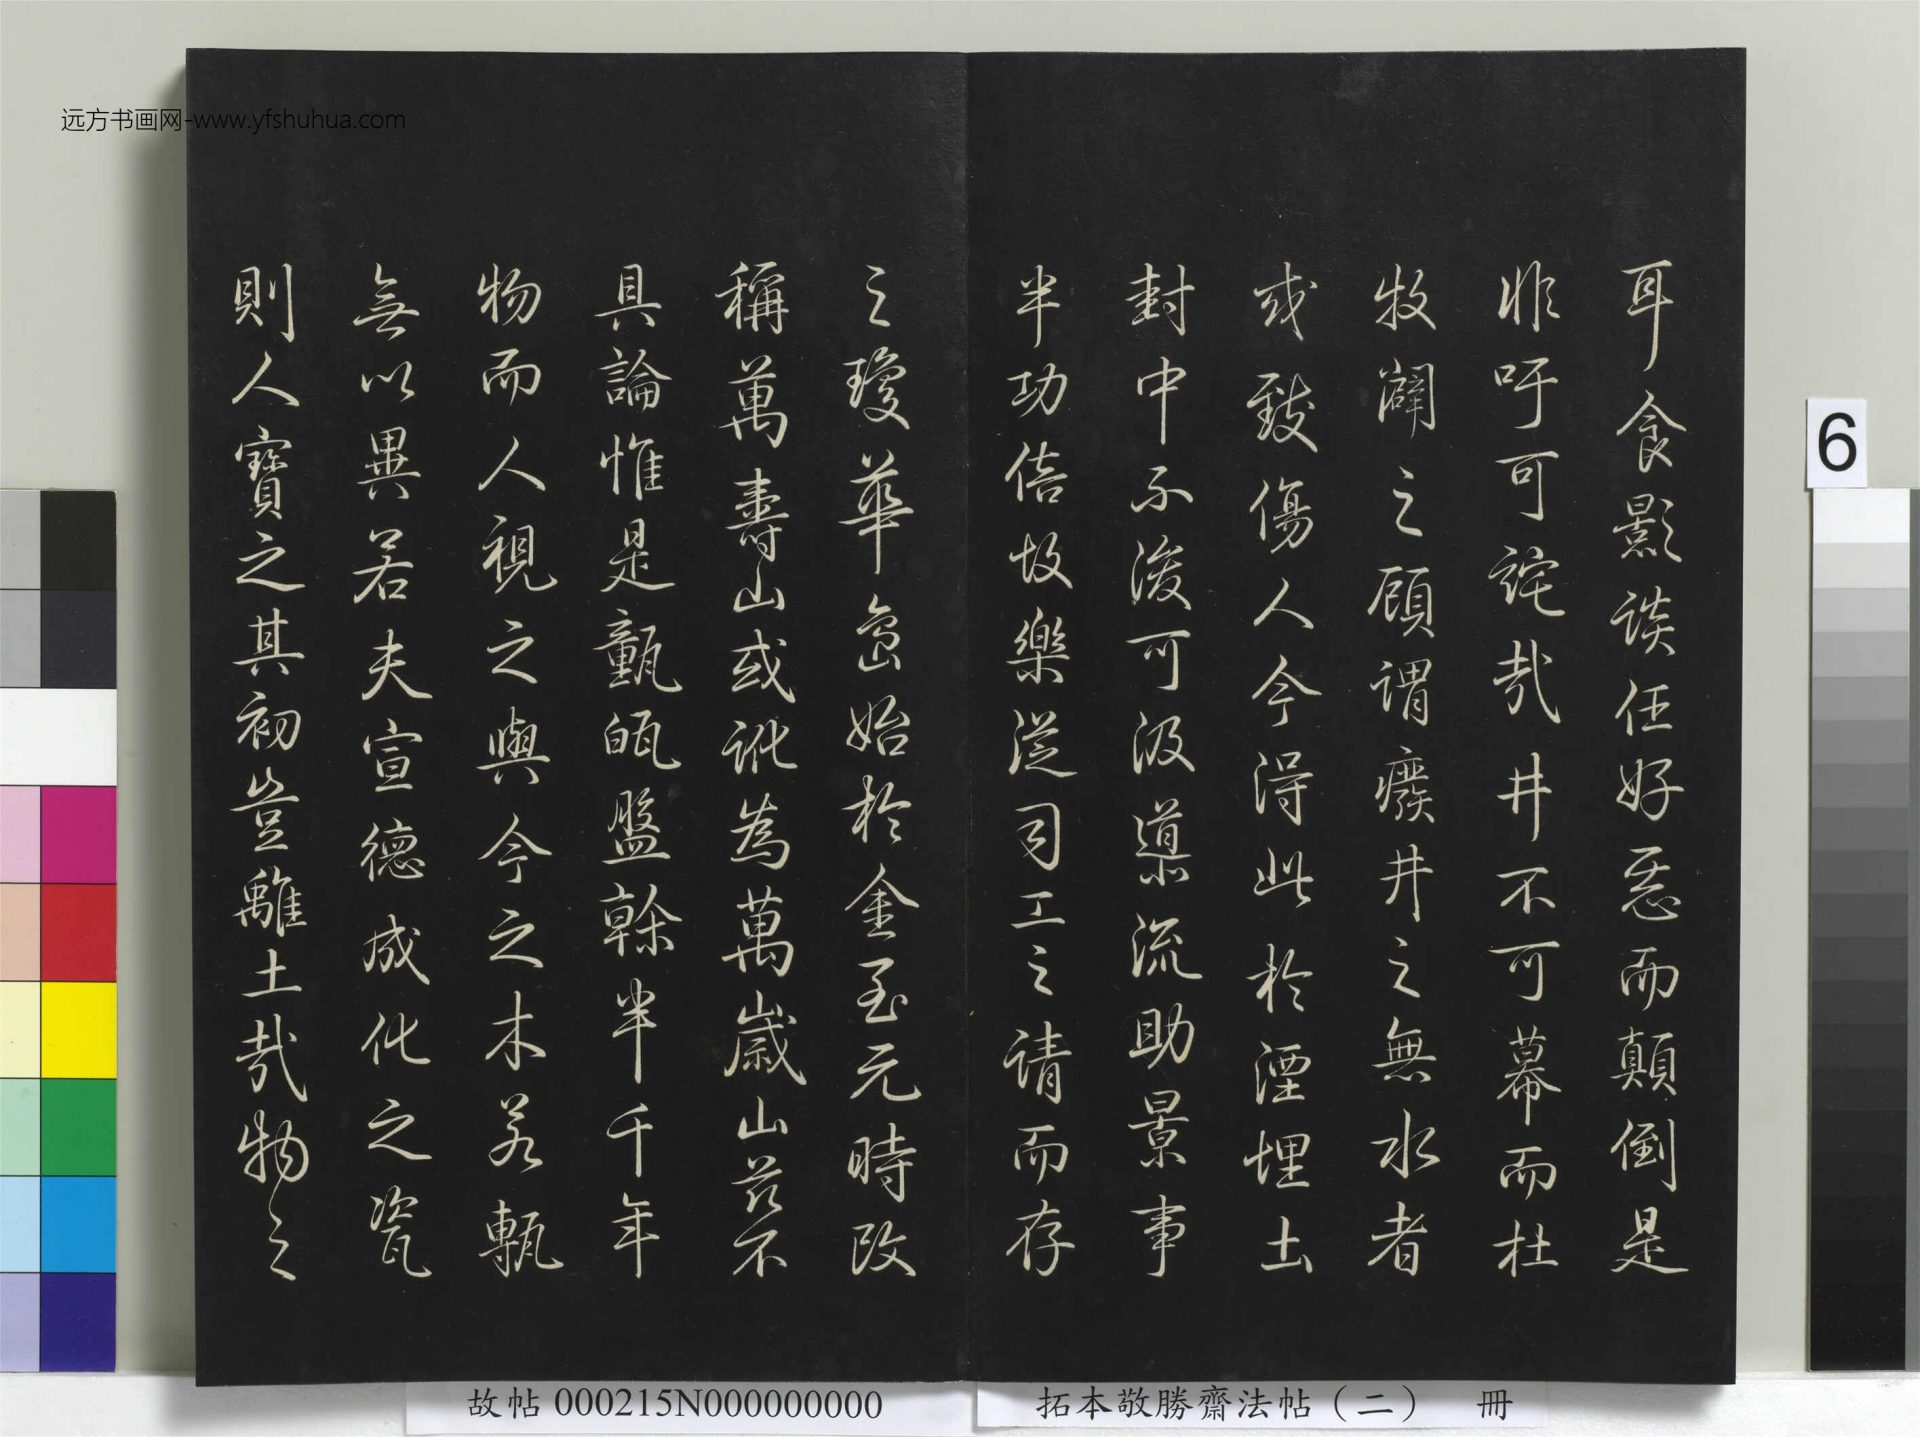 耳食影談任好惡而顛倒是
非吁可詫哉井不可幕而杜
牧闢之顧謂癈井之無水者
或致傷人今得此於湮埋土
封中不浚可汲導流助景事
半功倍故樂從司工之請而存
之瓊華島始於金至元時改
稱萬壽山或訛為萬歲山茲不
具論惟是甎瓴盤榦半千年
物而人視之與今之木石甎
無以異若夫宣德成化之瓷
則人寶之其初豈離土哉物之
远方书画网-www.yfshuhua.com
6
故帖 000215N000000000
拓本敬勝齋法帖（二） 冊